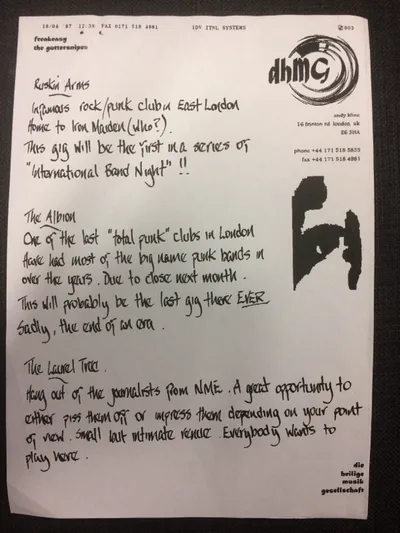 18/04 '97 12:36 FAX 0171 519 4981 IDV ITNL SYSTEMS 003
freakeasy
the guttersnipes
dhMG
andy
london uk
E6 3HA
phone +44 171 519 5835
fax +44 171 519 4981
Ruskin Arms
Infamous rock/punk club in East London
Home to Iron Maiden (who?).
This gig will be the first in a series of
"International Band Night" !!
The Albion
One of the last "total punk" clubs in London
Have had most of the big name punk bands in
over the years. Due to close next month.
This will probably be the last gig there EVER
Sadly, the end of an era.
The Laurel Tree.
Hang out of the journalists from NME. A great opportunity to
either piss them off or impress them depending on your point
of view. Small but intimate venue. Everybody wants to
play here.
die
heilige
musik
gesellschaft